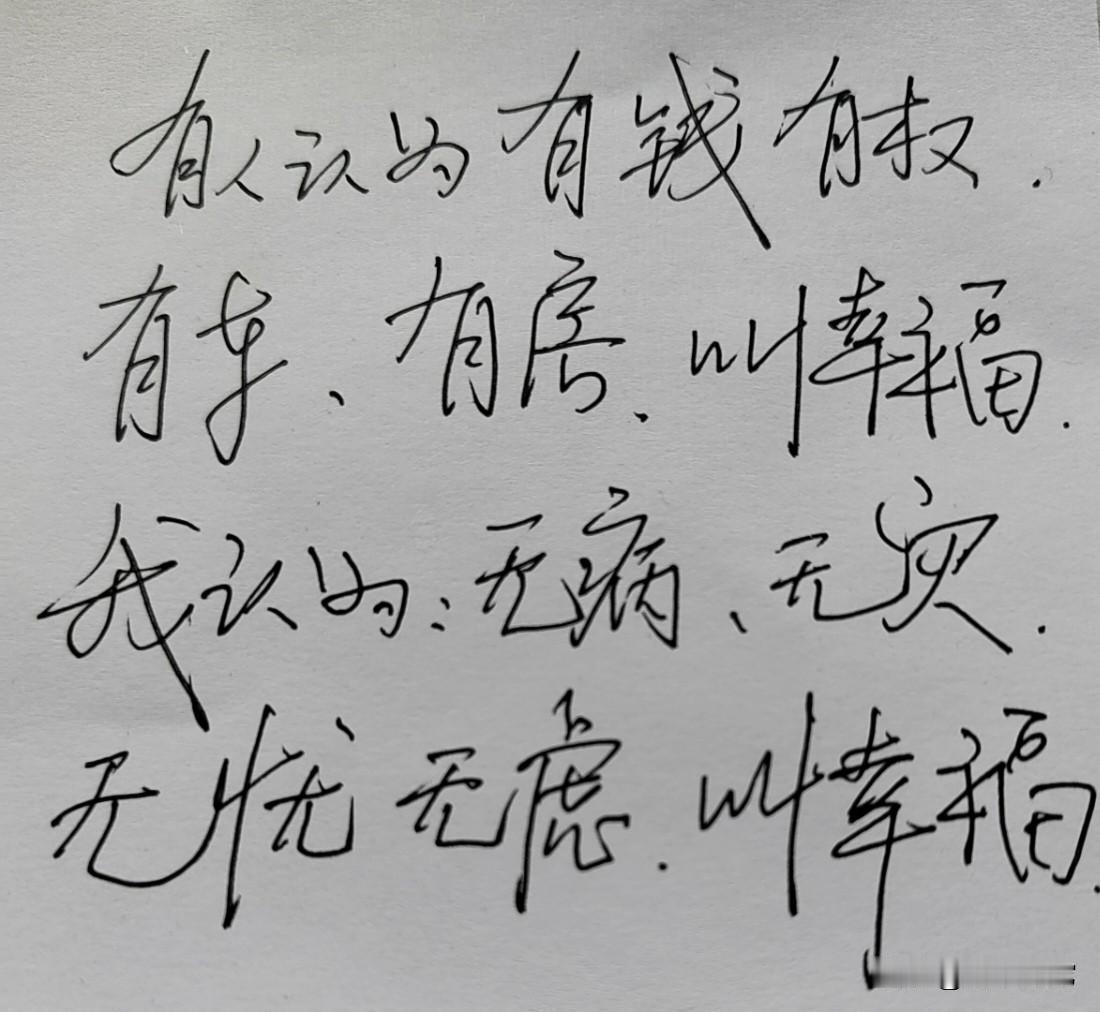 有人认为有钱有权.
有车、有房、叫幸福.
我认为:无病、无灾.
无忧无虑.叫幸福.